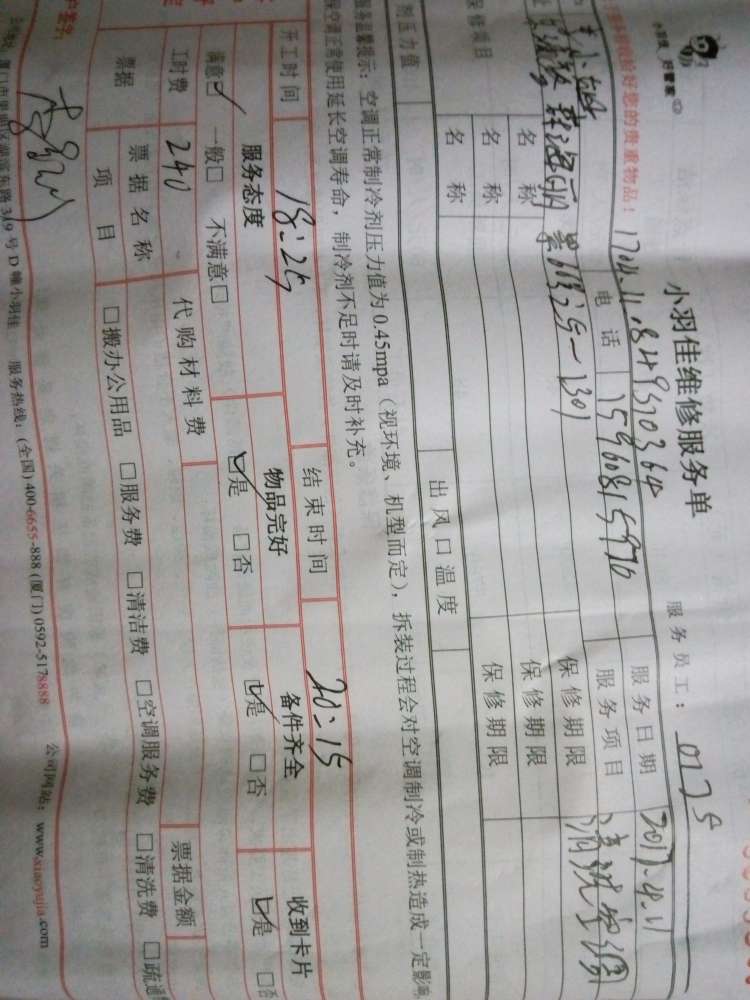 小羽佳 好管家
小羽佳维修服务单
服务员工: 0175
请仔细收捡好您的贵重物品! 170411849570364
电话 15960815976 服务日期 2017.4.11
服务项目 清洗空调
1301
名称 保修期限
名称 保修期限
名称 保修期限
保修项目
剂压力值 出风口温度
服务温馨提示: 空调正常制冷剂压力值为0.45mpa (视环境、机型而定), 拆装过程会对空调制冷或制热造成一定影响
保空调正常使用延长空调寿命, 制冷剂不足时请及时补充。
开工时间 18:25 结束时间 20:15
服务态度 物品完好 备件齐全 收到卡片
满意☑ 一般□ 不满意□ ☑是 □否 ☑是 □否 ☑是 □否
工时费 240 代购材料费
票据 票据名称 票据金额
项目 □搬办公用品 □服务费 □清洁费 □空调服务费 □清洗费 □疏通
户签字:
厦门市思明区湖滨东路319号D幢小羽佳 服务热线: (全国) 400-6655-888 (厦门) 0592-5178888 公司网站: www.xiaoyujia.com